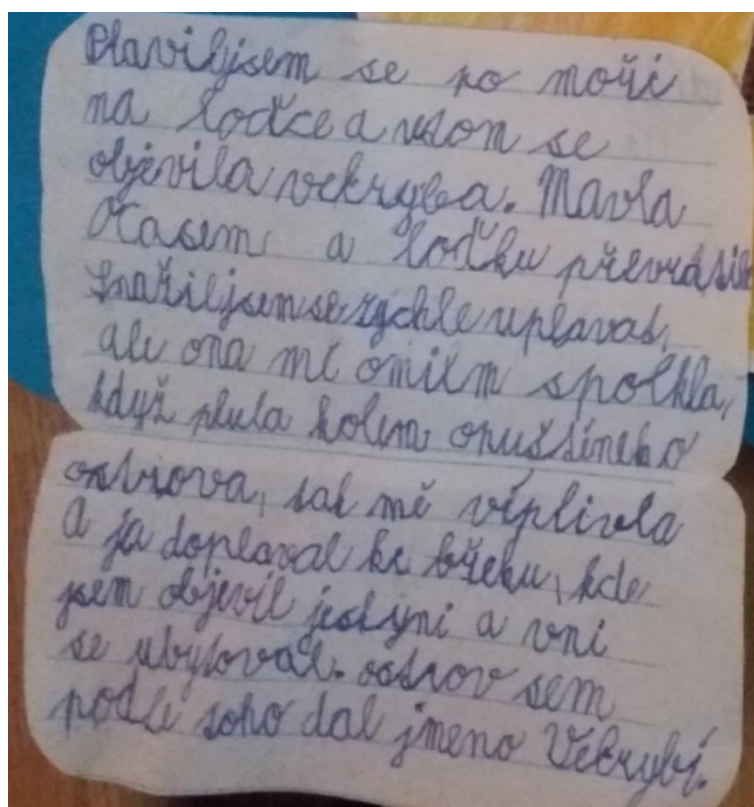 Plaviljsem se po moři
na loďce a vtom se
objevila vekryba. Mávla
Ocasem a loďku převrátila
Snažiljsemserychle uplavat,
ale ona mě omilem spolkla,
když plula kolem opuštíneho
ostrova, tak mě víplivla
a ja doplaval ke břehu, kde
jsem objevil jeskyni a vni
se ubytoval. ostrov sem
podle toho dal jmeno Vekrybí.